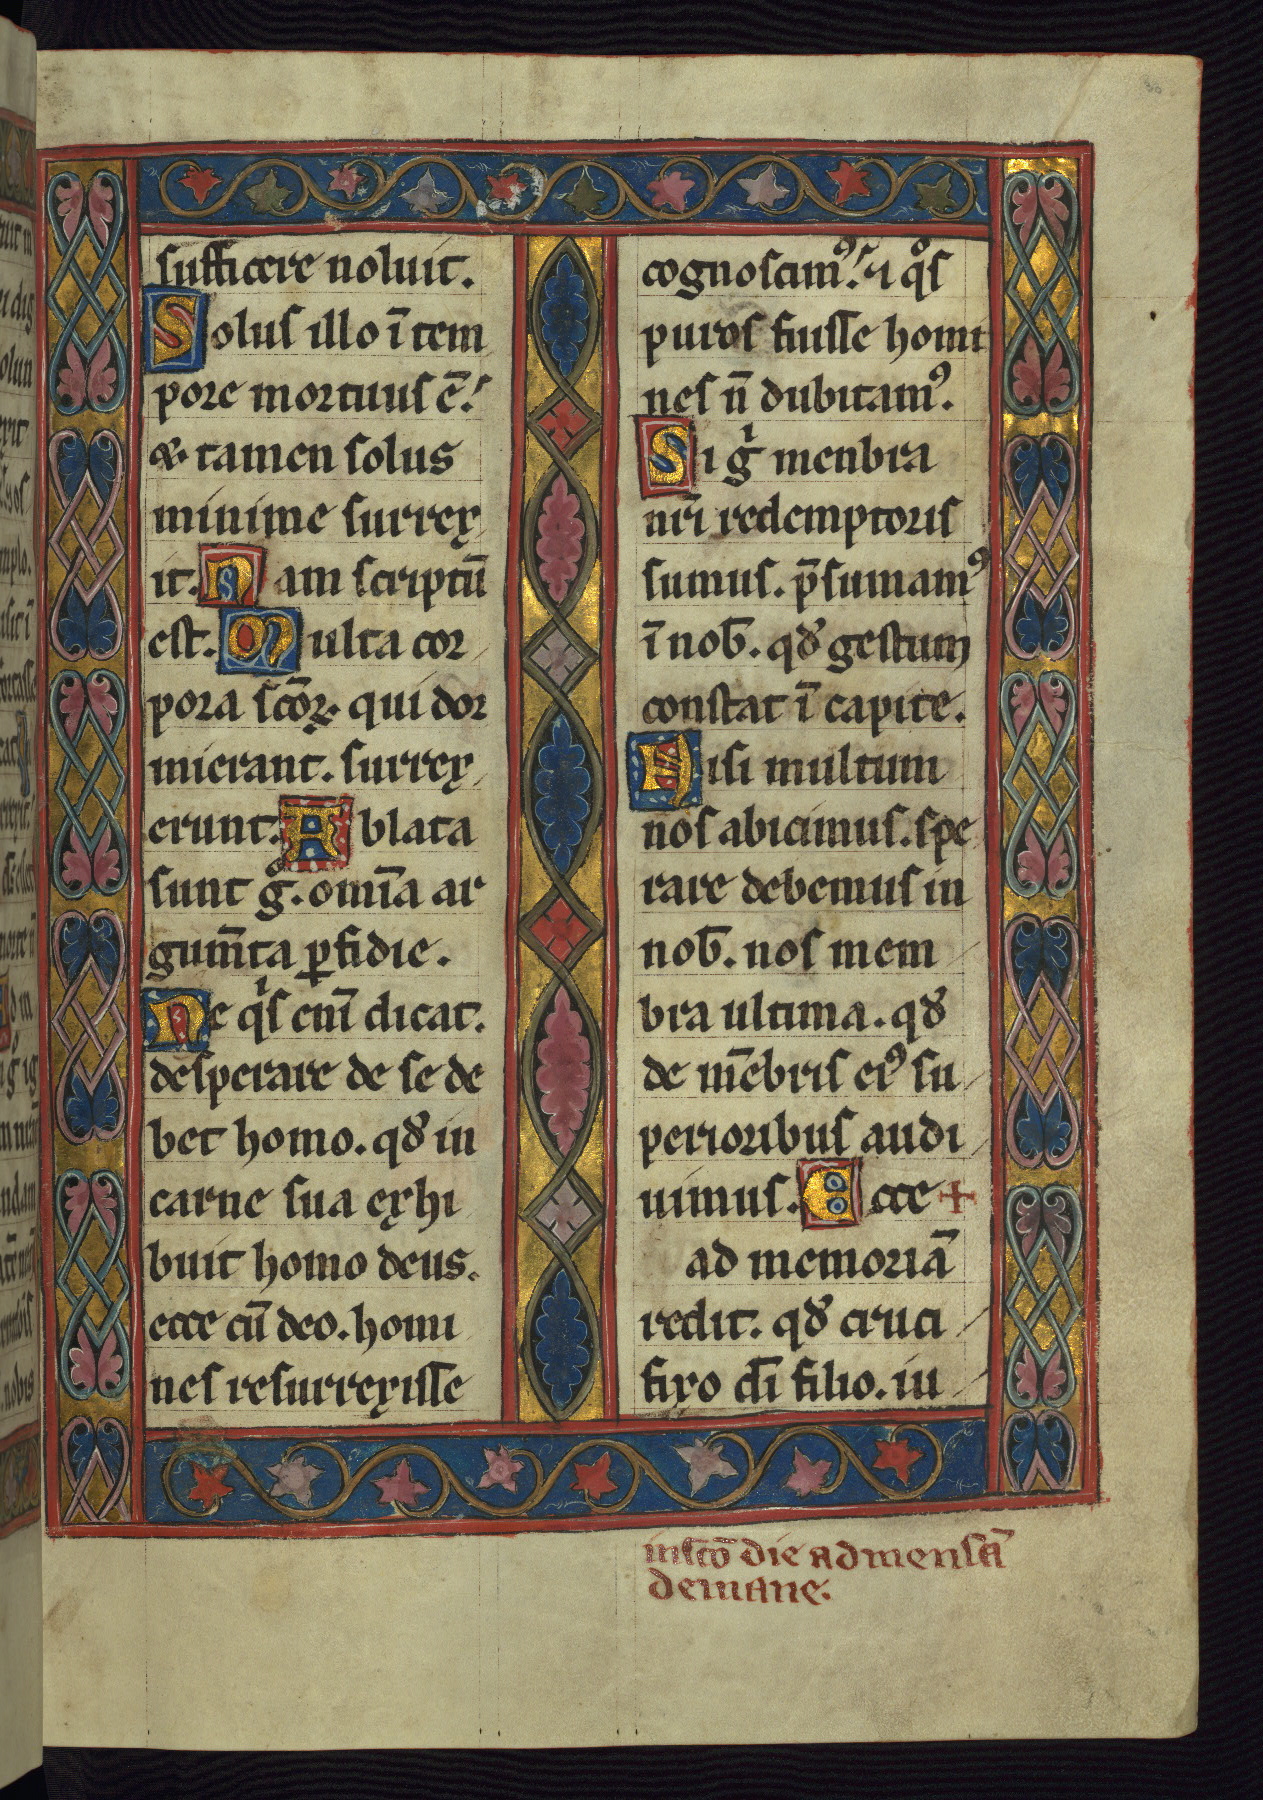 sufficere noluit.
Solus illo ī tem
pore mortuus ē.
& tamen solus
minime surrex
it. Nam scriptū
est. Multa cor
pora sc̄oꝝ. qui dor
mierant. surrex
erunt. Ablata
sunt gͦ. omīa ar
gum̄ta ꝑfidie.
Ne qͥs eni̅ dicat.
desperare de se de
bet homo. qd̕ in
carne sua exhi
buit homo deus.
ecce cū deo. homi
nes resurrexisse
cognoscimꝰ. ⁊ qͦs
puros fuisse homi
nes n̄ dubitamꝰ.
Si gͥ menbra
nr̄i redemptoris
sumus. p̄sumamꝰ
ī nob̄. qd̕ gestum
constat ī capite.
Nisi multum
nos abicimus. spe
rare debemus in
nob̄. nos mem
bra ultima. qd̕
de mēbris eiꝰ su
perioribus audi
uimus. Ecce +
ad memoriā
redit. qd̕ cruci
fixo di̅ filio. iu
in sc̄o die ad mensā
de mane.